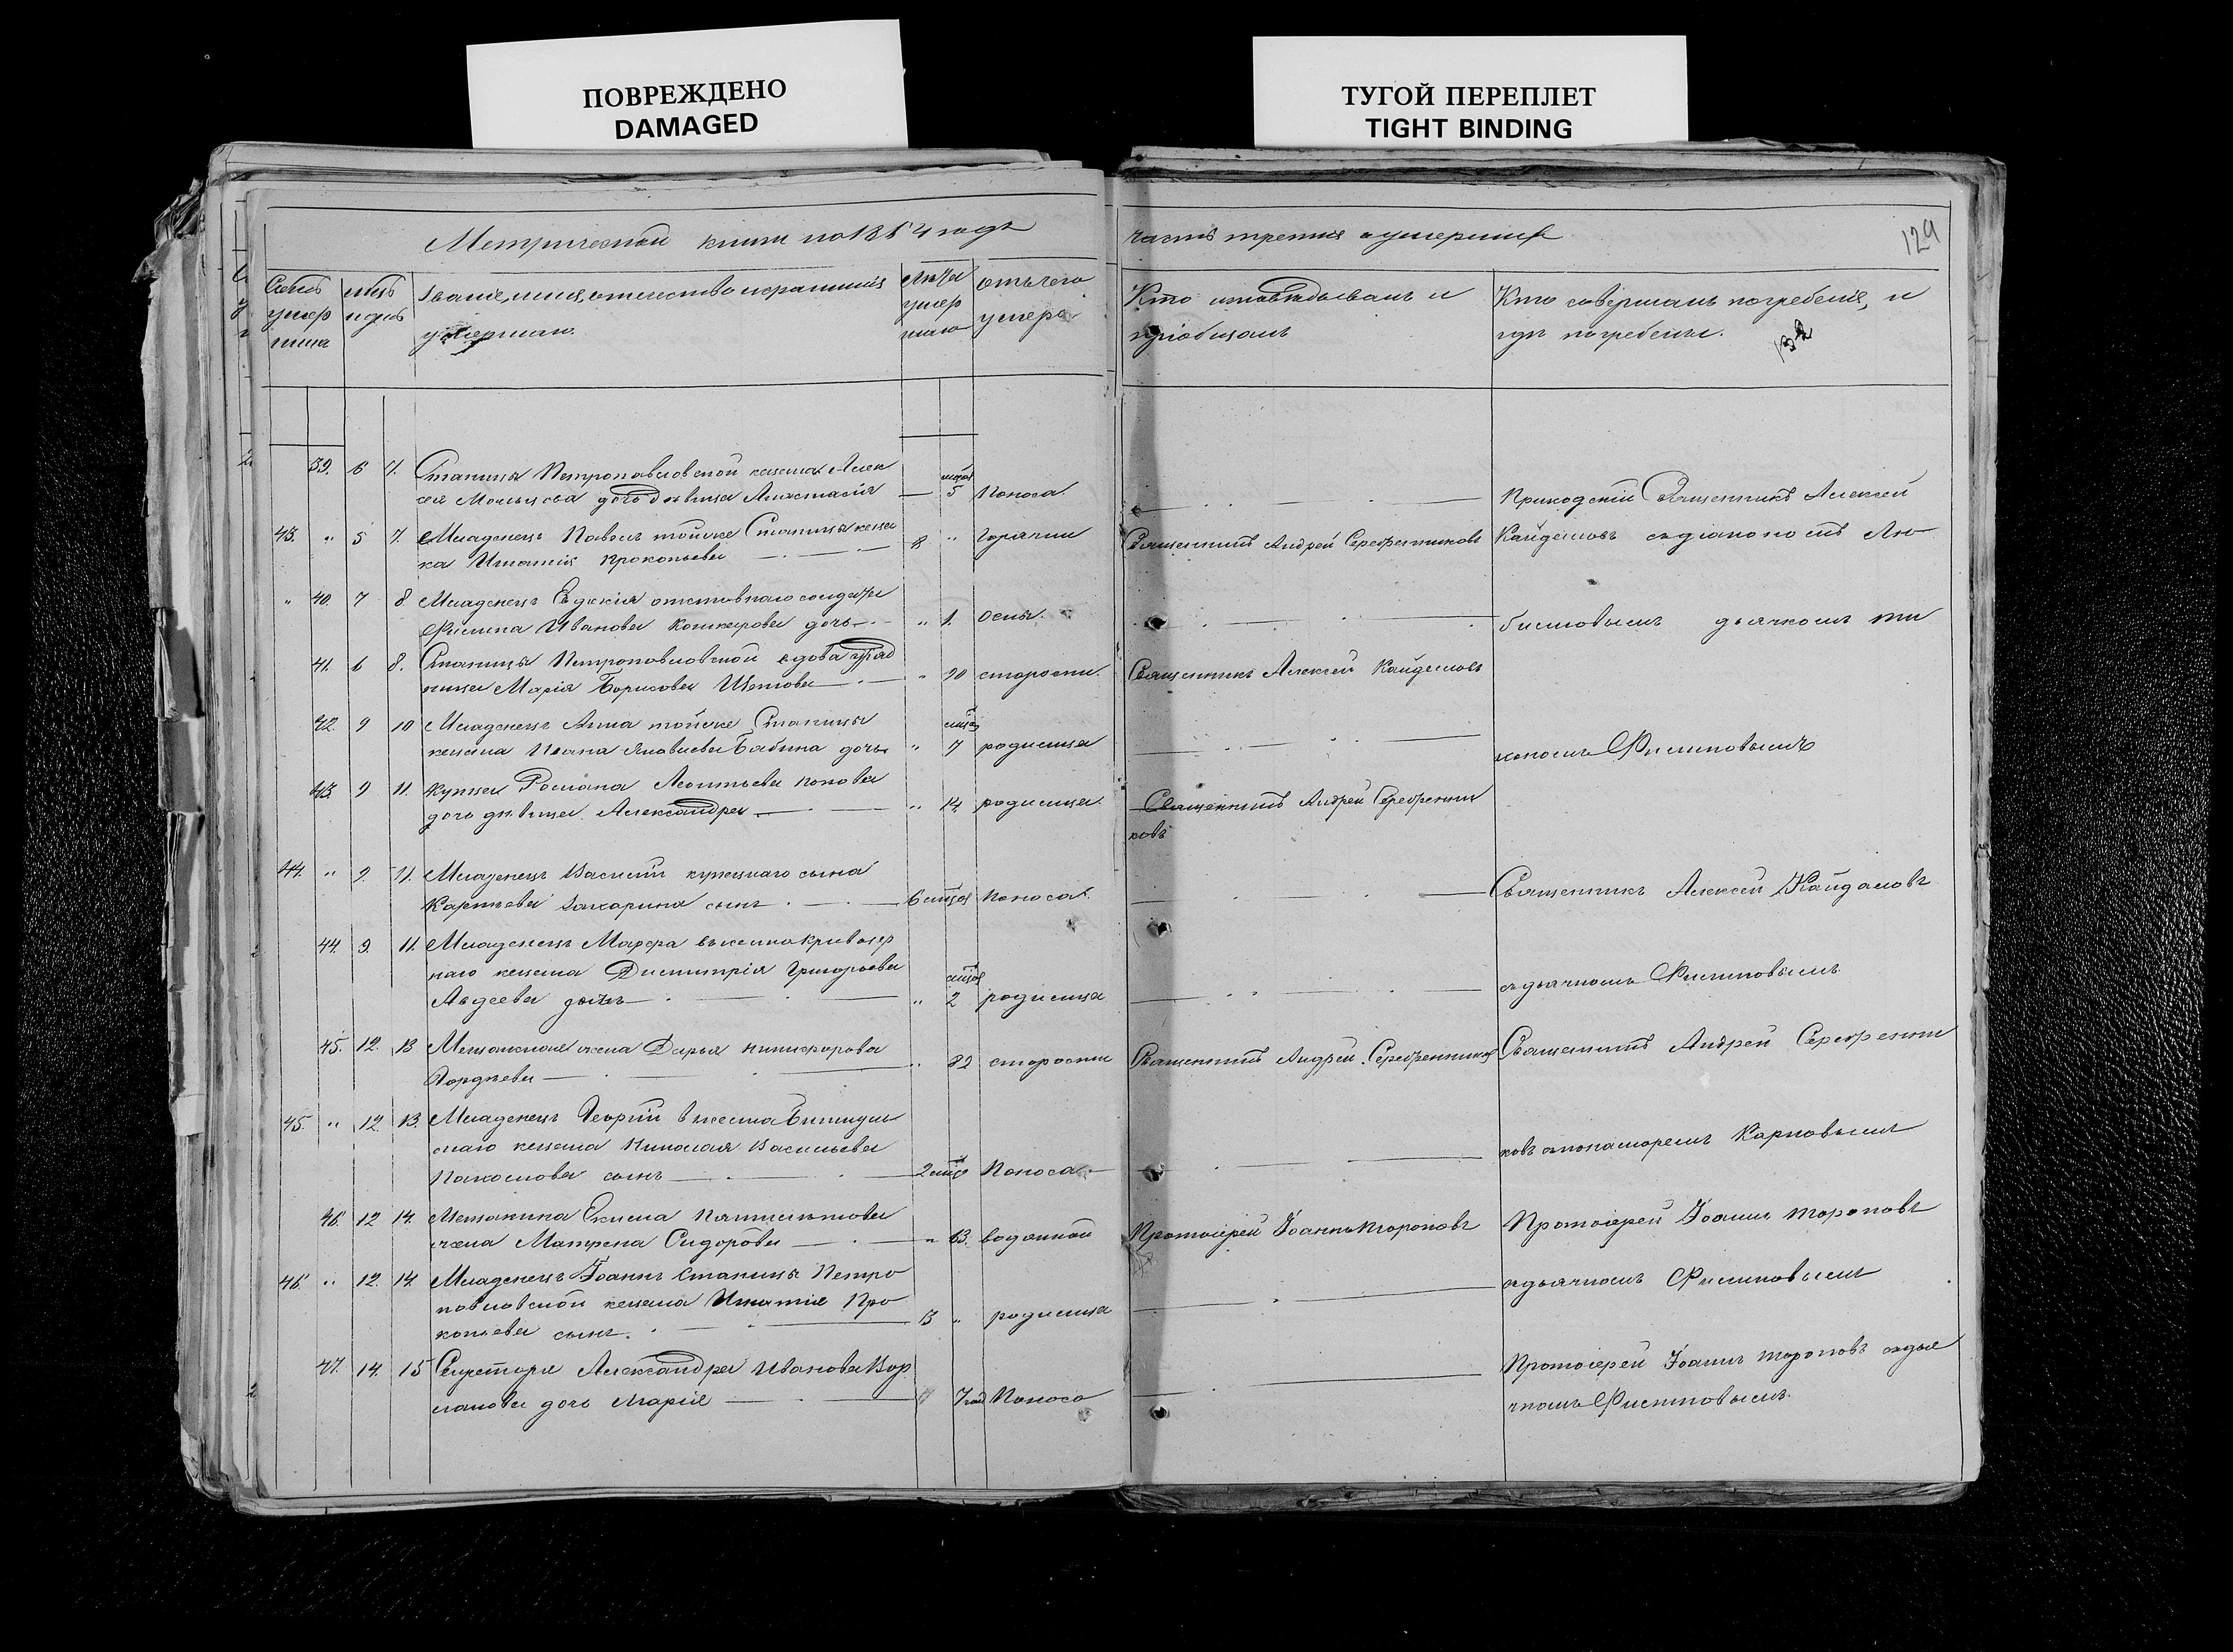 ПОВРЕЖДЕНО
DAMAGED
ТУГОЙ ПЕРЕПЛЕТ
TIGHT BINDING
Метрической книги на 1864 годъ
часть третия о умершихъ
129
Счетъ умер шихъ
мѣсяцъ и день
Званіе, имя, отчество и фамилія умершаго
Лѣта умер шаго
отъ чего умеръ
Кто исповѣдывалъ и пріобщалъ
Кто совершалъ погребеніе, и гдѣ погребены.
132
39. 6 7. Станицы Петропавловской казака Алек
сея дочь дѣвица Анастасія — 5 поноса.
Приходскій Священникъ Алексей
43. " 5 7. Младенецъ Павелъ тойже Станицы каза
ка Игнатія Прокопьева 8 " горячки
Священникъ Андрей Серебренниковъ
Кайдаловъ съ діакономъ Лю
" 40. 7 8. Младенецъ Евдокія отставнаго солдата
Филипа Иванова дочь " 1. оспы.
бимовымъ дьячкомъ
41. 6 8. Станицы Петропавловской вдова уряд
ница Марія Борисова " 90 старости.
Священникъ Алексей Кайдаловъ
42. 9 10 Младенецъ Анна тойже Станицы
казака Ивана Бабина дочь " 7 родимца
Филиповымъ
43. 9 11. Купца Романа Леонтьева Попова
дочь дѣвица Александра " 14. родимца.
Священникъ Андрей Серебренни
ковъ
44. " 9. 11. Младенецъ Василій купецкаго сына
Захарина сынъ 6 поноса.
Священникъ Алексей Кайдаловъ
44. 9. 11. Младенецъ Марфа выселка Кривоозер
наго казака Димитрія Григорьева
Авдеева дочь " 2 родимца
съ дьячкомъ Филиповымъ
45. 12. 13 Мещанская жена Дарья Никифорова
Гордѣева " 82 старости
Священникъ Андрей Серебренниковъ
Священникъ Андрей Серебренни
45. " 12. 13. Младенецъ Георгій выселка
скаго казака Николая Васильева
Пахомова сынъ 2 поноса
ковъ съ пономоремъ Карповымъ
46. 12 14. Мещанина Екима
жена Матрена Сидорова " 63. водяной
Протоіерей Іоаннъ Тороповъ
Протоіерей Іоаннъ Тороповъ
46. " 12. 14. Младенецъ Іоаннъ Станицы Петро
павловской казака Игнатія Про
копьева сынъ. " родимца
съ дьячкомъ Филиповымъ
47. 14. 15 Секретаря Александра Иванова
дочь Марія 7 поноса
Протоіерей Іоаннъ Тороповъ съ дья
чкомъ Филиповымъ.